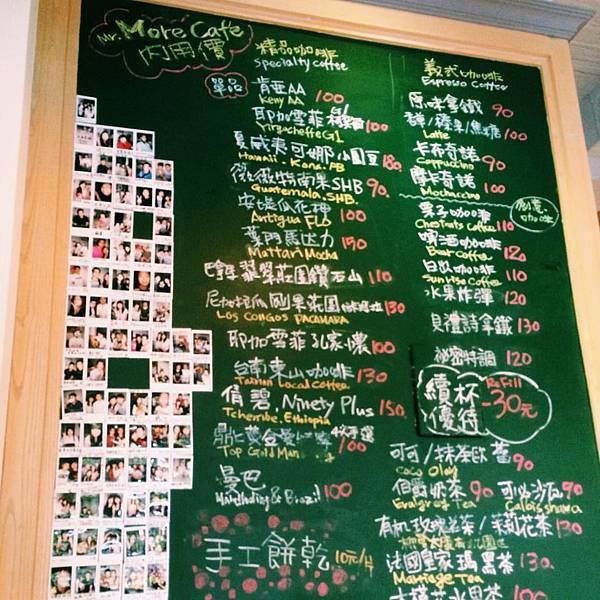 Mr. More Cafe
內用價
精品咖啡
Specialty coffee
單品
肯亞AA 100
Keny AA
耶加雪菲 100
Yirgacheffe G1
夏威夷可娜小圓豆 180
Hawaii. Kona. PB
薇薇特南果SHB 90
Guatemala. SHB.
安堤瓜花神 100
Antigua FLO
葉門馬達力 150
Mattari Mocha
巴拿馬翡翠莊園鑽石山 110
尼加拉瓜 剛果莊園 130
LOS CONGOS PACAMARA
耶加雪菲孔家儂 100
台南東山咖啡 130
Tainan Local coffee
倩碧 Ninety Plus 150
Tchembe, Ethiopia
黃金曼 100
Top Gold Man
曼巴 100
Mandheling & Brazil
手工餅乾 10元/片
義式咖啡
Espresso Coffee
原味拿鐵 90
榛果/焦糖 100
Latte
卡布奇諾 90
Cappuccino
摩卡奇諾 100
Mochaccino
創意咖啡
栗子咖啡 110
Chestnuts Coffee
啤酒咖啡 120
Beer Coffee
日出咖啡 110
Sunrise Coffee
水果炸彈 120
貝禮詩拿鐵 130
祕密特調 120
續杯 Refill
優待 -30元
可可/抹茶歐蕾 90
Coco Olay
伯爵奶茶 90 可必沙瓦 90
Earlgrey Tea Calbis hawa
有機玫瑰花茶/茉莉花茶 130
法國皇家瑪黑茶 130.
Marriage Tea
水果茶 100